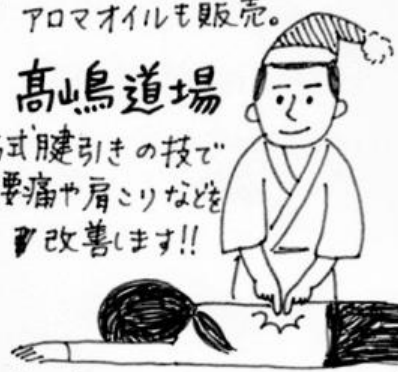 アロマオイルも販売。
髙嶋道場
式腱引きの技で
腰痛や肩こりなどを
改善します!!